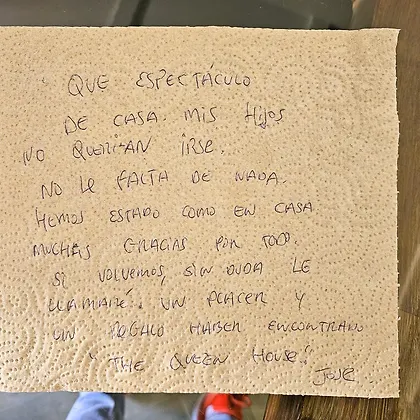 QUE ESPECTÁCULO
DE CASA. MIS HIJOS
NO QUERÍAN IRSE.
NO LE FALTA DE NADA.
HEMOS ESTADO COMO EN CASA
MUCHAS GRACIAS POR TODO.
SI VOLVEMOS, SIN DUDA LE
LLAMARÉ. UN PLACER Y
UN REGALO HABER ENCONTRADO
"THE QUEEN HOUSE".
JOSE